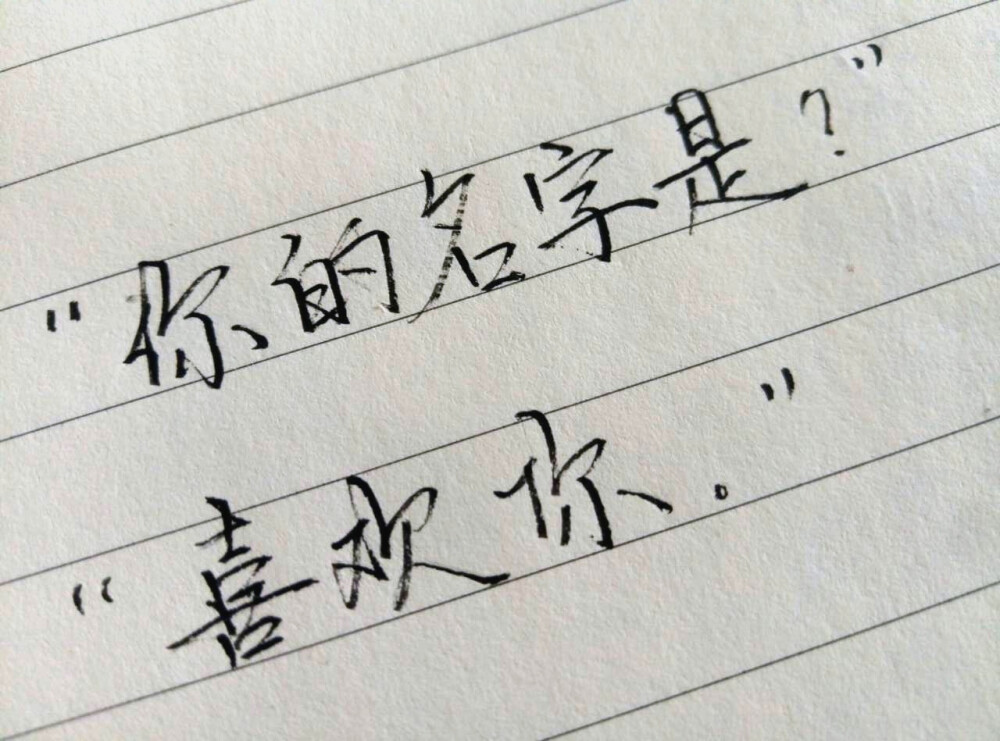 "你的名字是?"
"喜欢你."